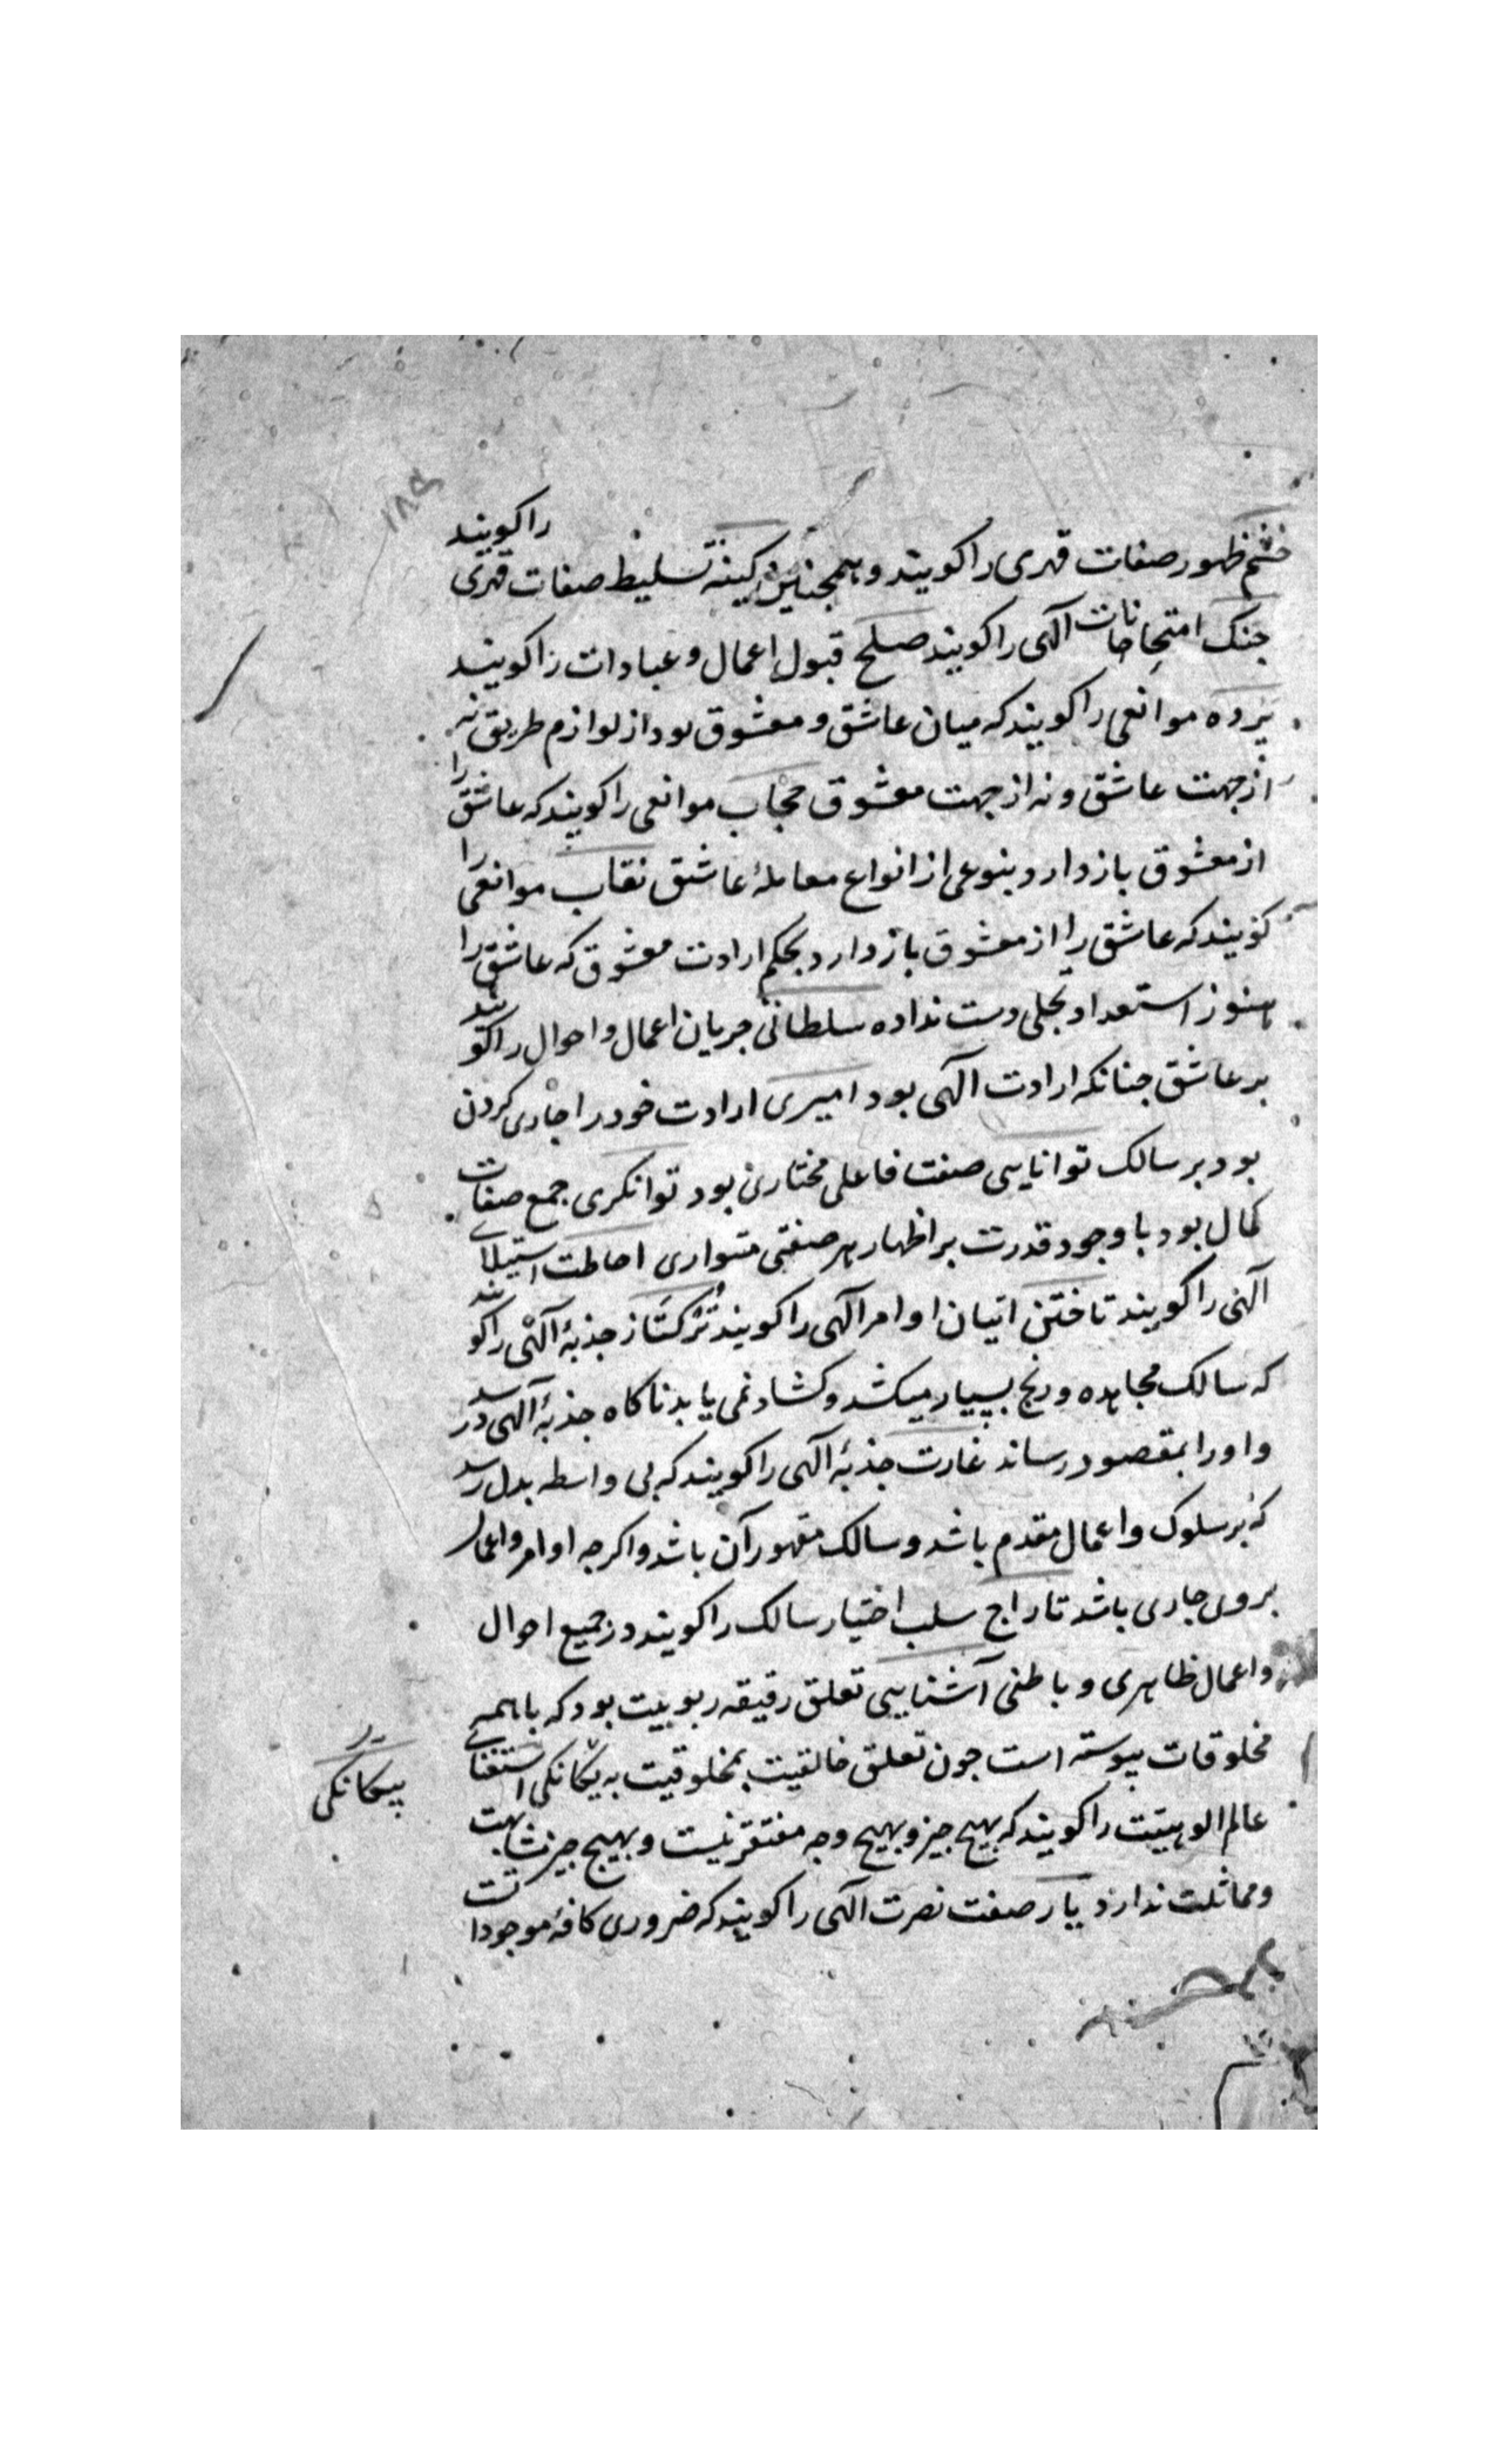 ۱۸۵
خشم ظهور صفات قهری را کویند و همجنین کینه تسلیط صفات قهری را کویند
جنک امتحانات آلهی را کویند صلح قبول اعمال و عبادات را کویند
پرده موانعی را کویند که میان عاشق و معشوق بود از لوازم طریق نه
از جهت عاشق و نه از جهت معشوق حجاب موانعی را کویند که عاشق را
از معشوق بازدارد بنوعی از انواع معاملهٔ عاشق نقاب موانعی را
کویند که عاشق را از معشوق بازدارد بحکم ارادت معشوق که عاشق را
هنوز استعداد تجلی دست نداده سلطانی جریان اعمال و احوال را کویند
بر عاشق جنانکه ارادت آلهی بود امیری ارادت خود را جاری کردن
بود بر سالک توانایی صفت فاعلی مختاری بود توانکری جمع صفات
کمال بود با وجود قدرت بر اظهار هر صفتی متواری احاطت استیلای
آلهی را کویند تاختن اتیان اوامر آلهی را کویند ترکتاز جذبهٔ آلهی را کویند
که سالک مجاهده و رنج بسیار میکشد و کشاد نمی یابد ناکاه جذبهٔ آلهی در رسد
و او را بمقصود رساند غارت جذبهٔ آلهی را کویند که بی واسطه بدل رسد
که بر سلوک و اعمال مقدم باشد و سالک مقهور آن باشد و اکرجه اوامر و اعمال
بروی جاری باشد تاراج سلب اختیار سالک را کویند در جمیع احوال
و اعمال ظاهری و باطنی آشنایی تعلق رقیقه ربوبیت بود که با همه
مخلوقات پیوسته است جون تعلق خالقیت بمخلوقیت به یکانکی استغنای
بیکانکی
عالم الوهیت را کویند که بهیج جیز و بهیج وجه مفتقر نیست و بهیج جیز مشابهت
و مماثلت ندارد یار صفت نصرت آلهی را کویند که ضروری کافهٔ موجودات